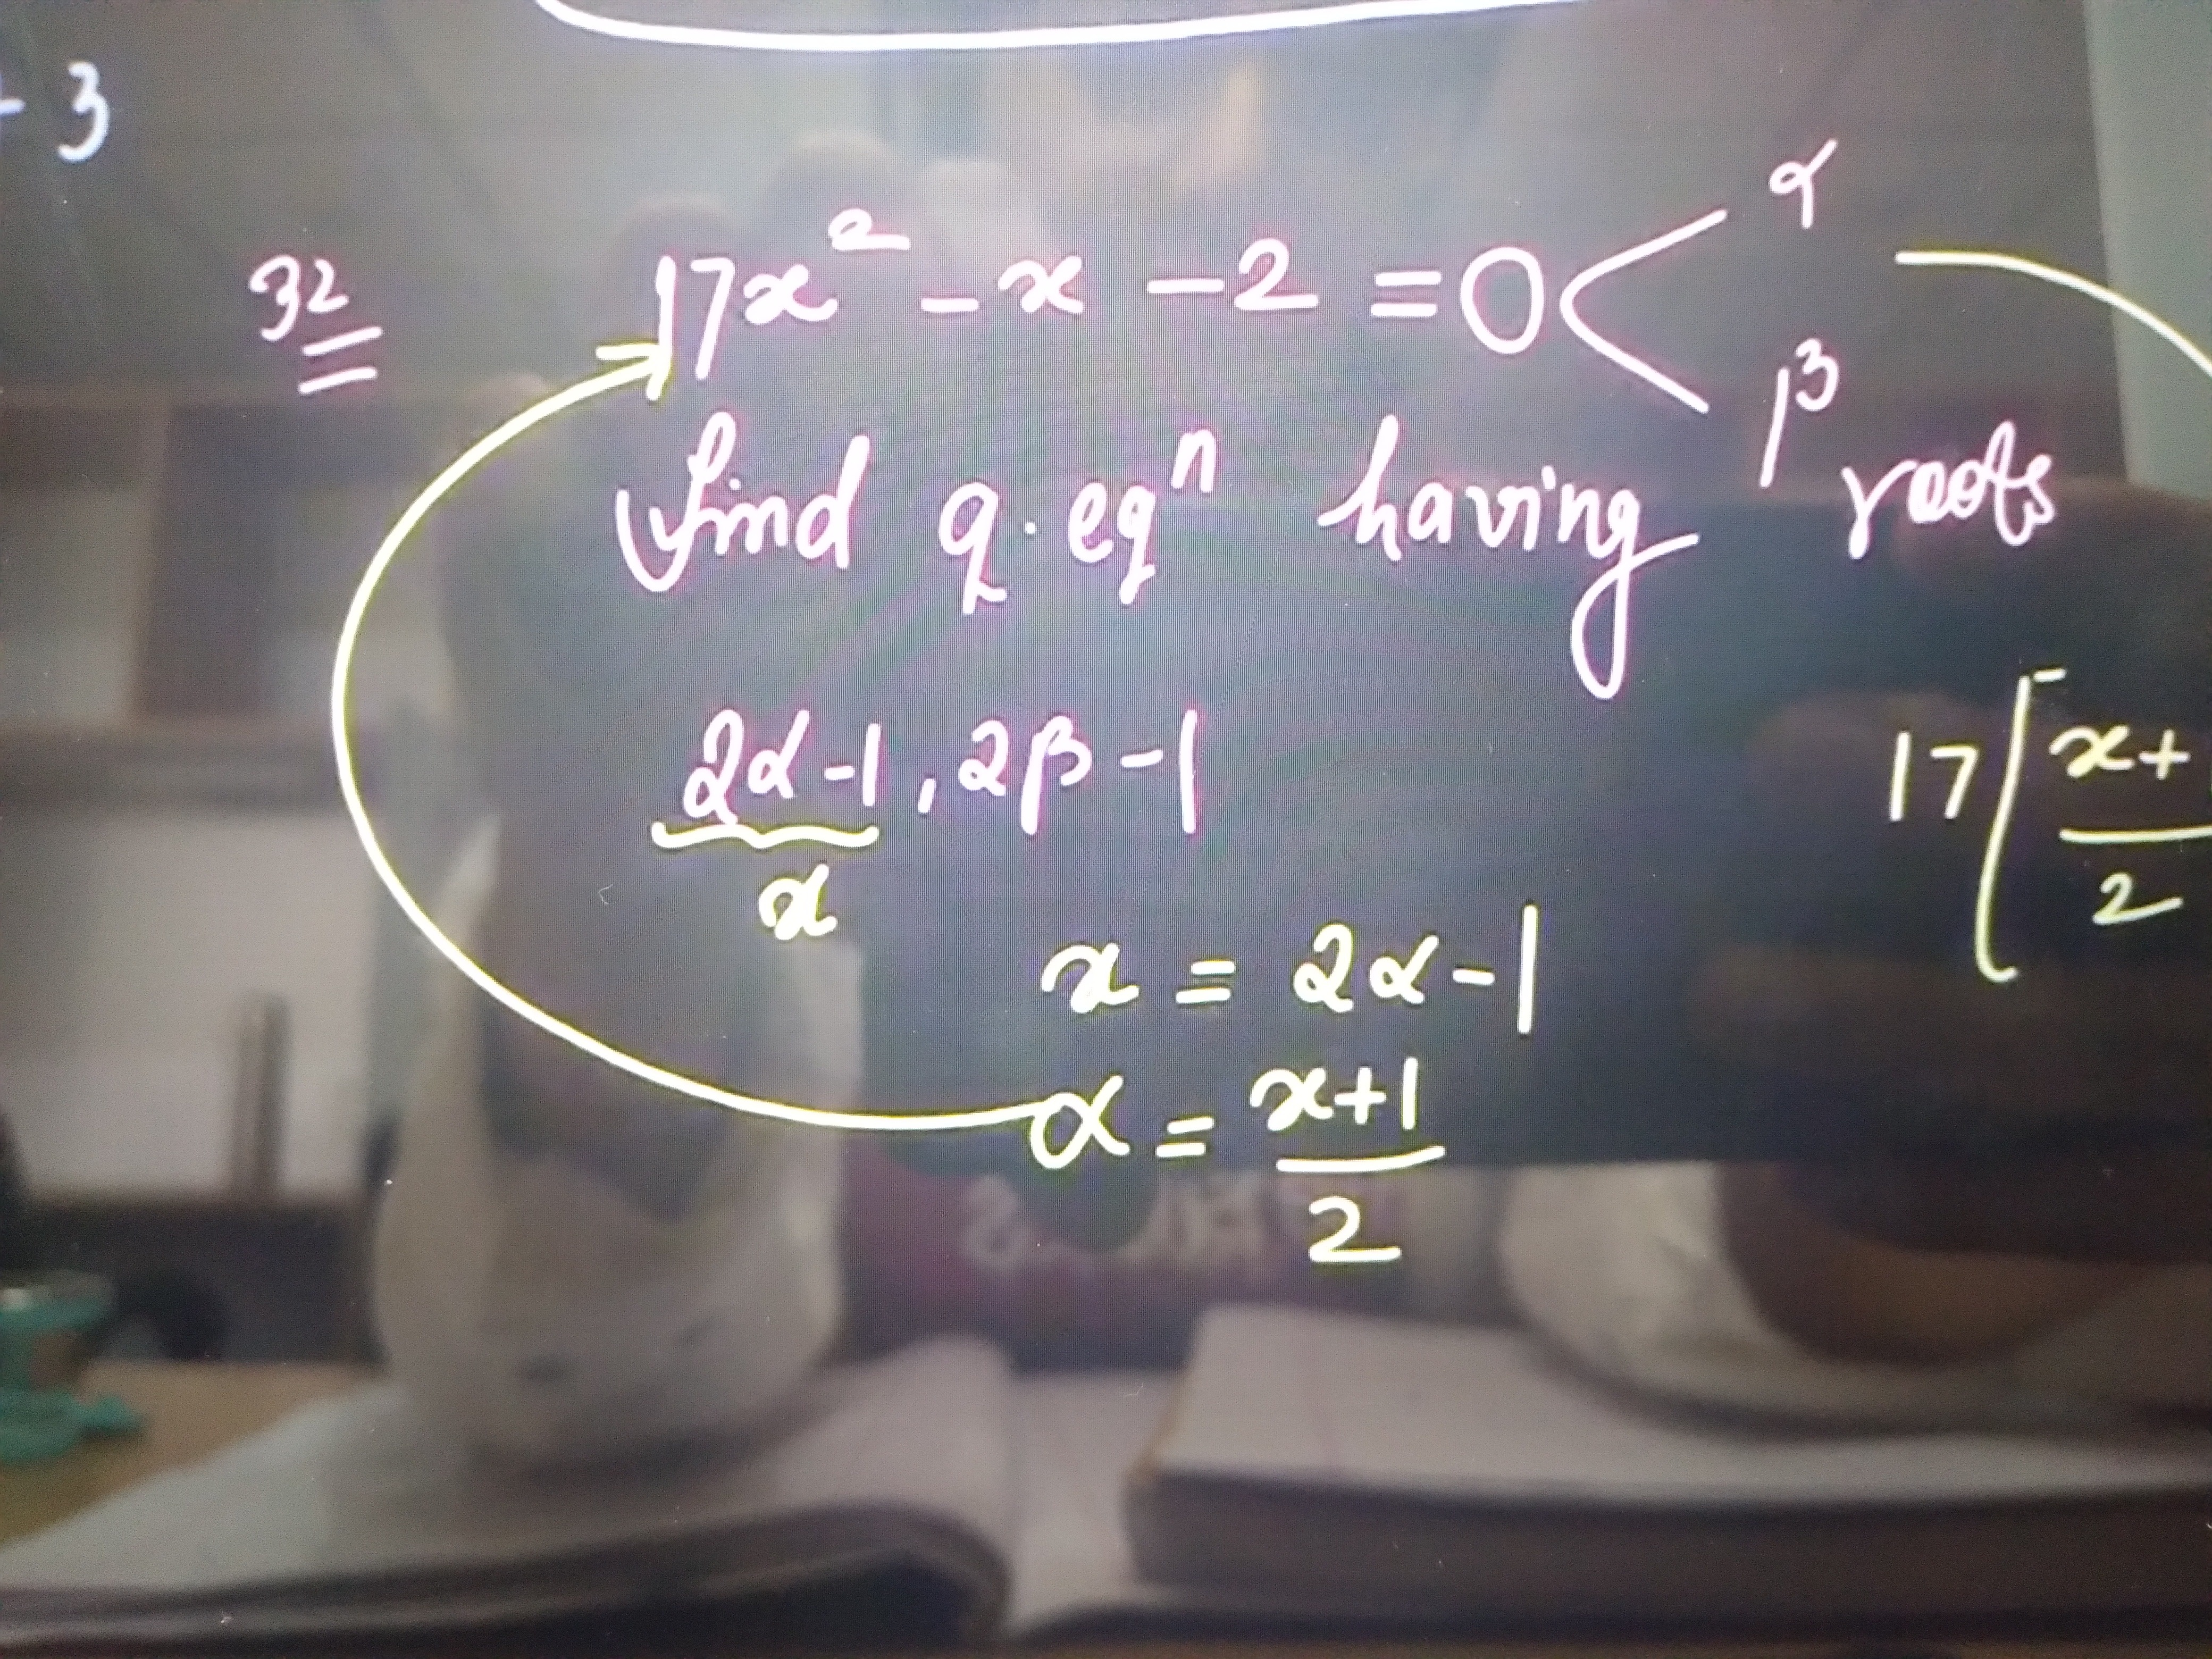 + 3
32
17x² - x - 2 = 0 < α
β
find q. eqⁿ having roots
2α-1, 2β-1
x
17 ( x+
2
x = 2α-1
α = x+1
2